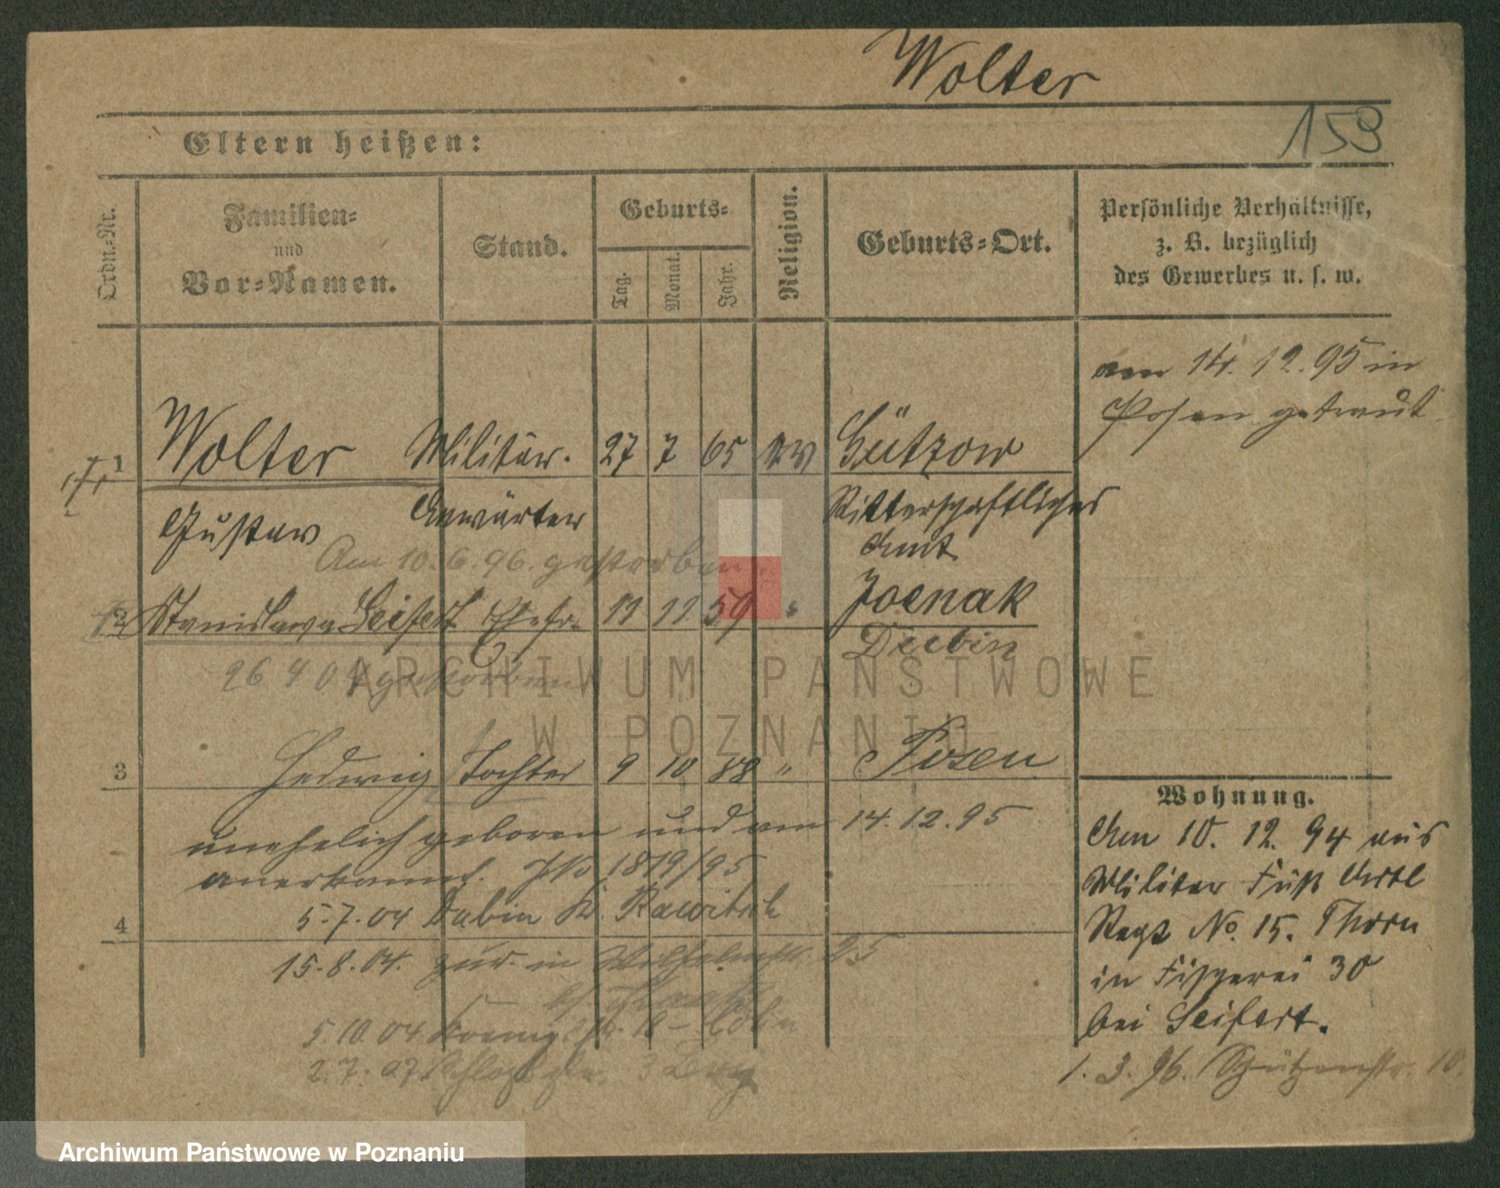 Wolter
159
Eltern heißen:
Ordn.-Nr.
Familien-
und
Vor-Namen.
Stand.
Geburts-
Tag.
Monat.
Jahr.
Religion.
Geburts-Ort.
Persönliche Verhältnisse,
z. B. bezüglich
des Gewerbes u. s. w.
am 14. 12. 95 in
Posen getraut
1 Wolter Militär. 27 7 65 ev Gützow
Gustav Anwärter Ritterschaftliches
Amt
Am 10. 6. 96. gestorben
2 Stanislawa Seifert Ehefr. 11 11 59 " Jocnak
26 4 04 gestorben
3 Hedwig Tochter 9 10 88 " Posen
unehelich geboren und am 14. 12. 95
anerkannt. 1819/95
4
5. 7. 04 Dubin K. Rawitsch
15. 8. 04. zur. in Wilhelmstr. 25
5. 10. 04
2. 7. 07.
Wohnung.
Am 10. 12. 94 aus
Militär Fuß Artl
Regt No. 15. Thorn
in Fischerei 30
bei Seifert.
1. 3. 96. Schützenstr. 10.
ARCHIWUM PAŃSTWOWE
W POZNANIU
Archiwum Państwowe w Poznaniu